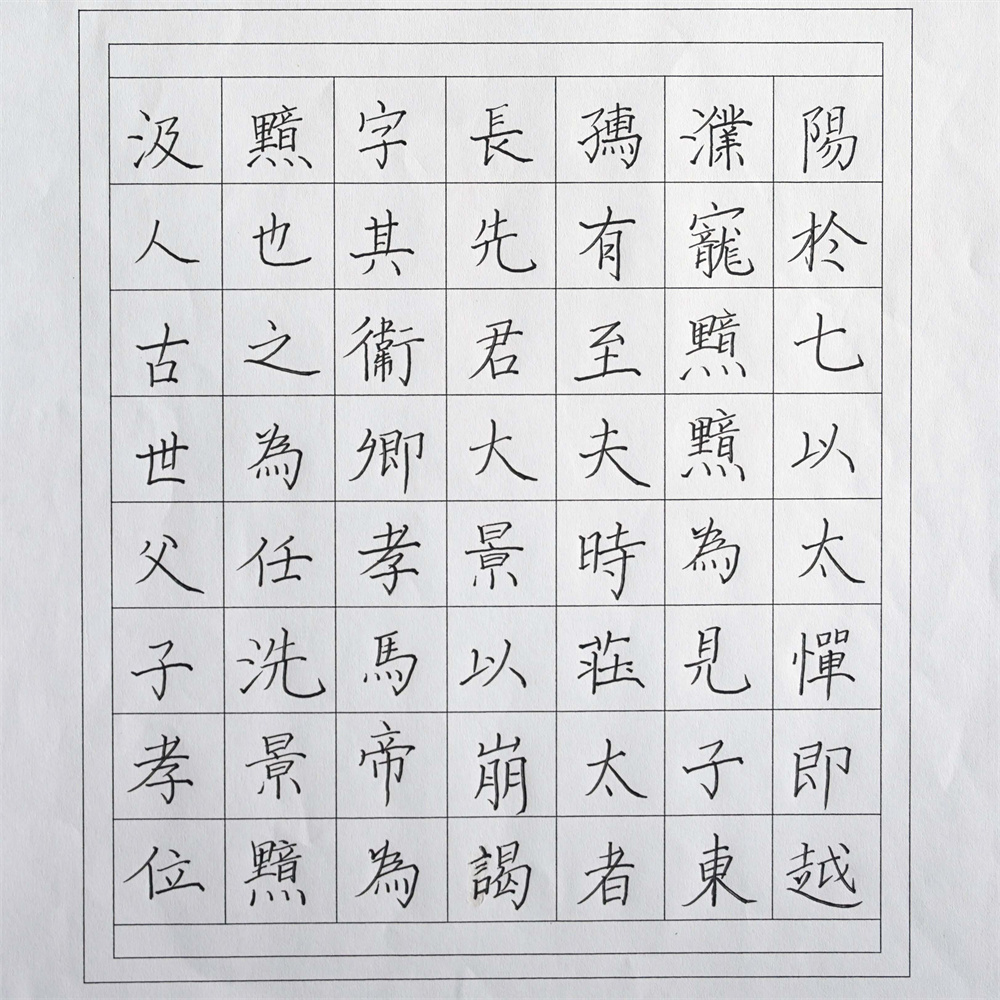 汲黯字長孺濮陽
人也其先有寵於
古之衛君至黯七
世為卿大夫黯以
父任孝景時為太
子洗馬以莊見憚
孝景帝崩太子即
位黯為謁者東越